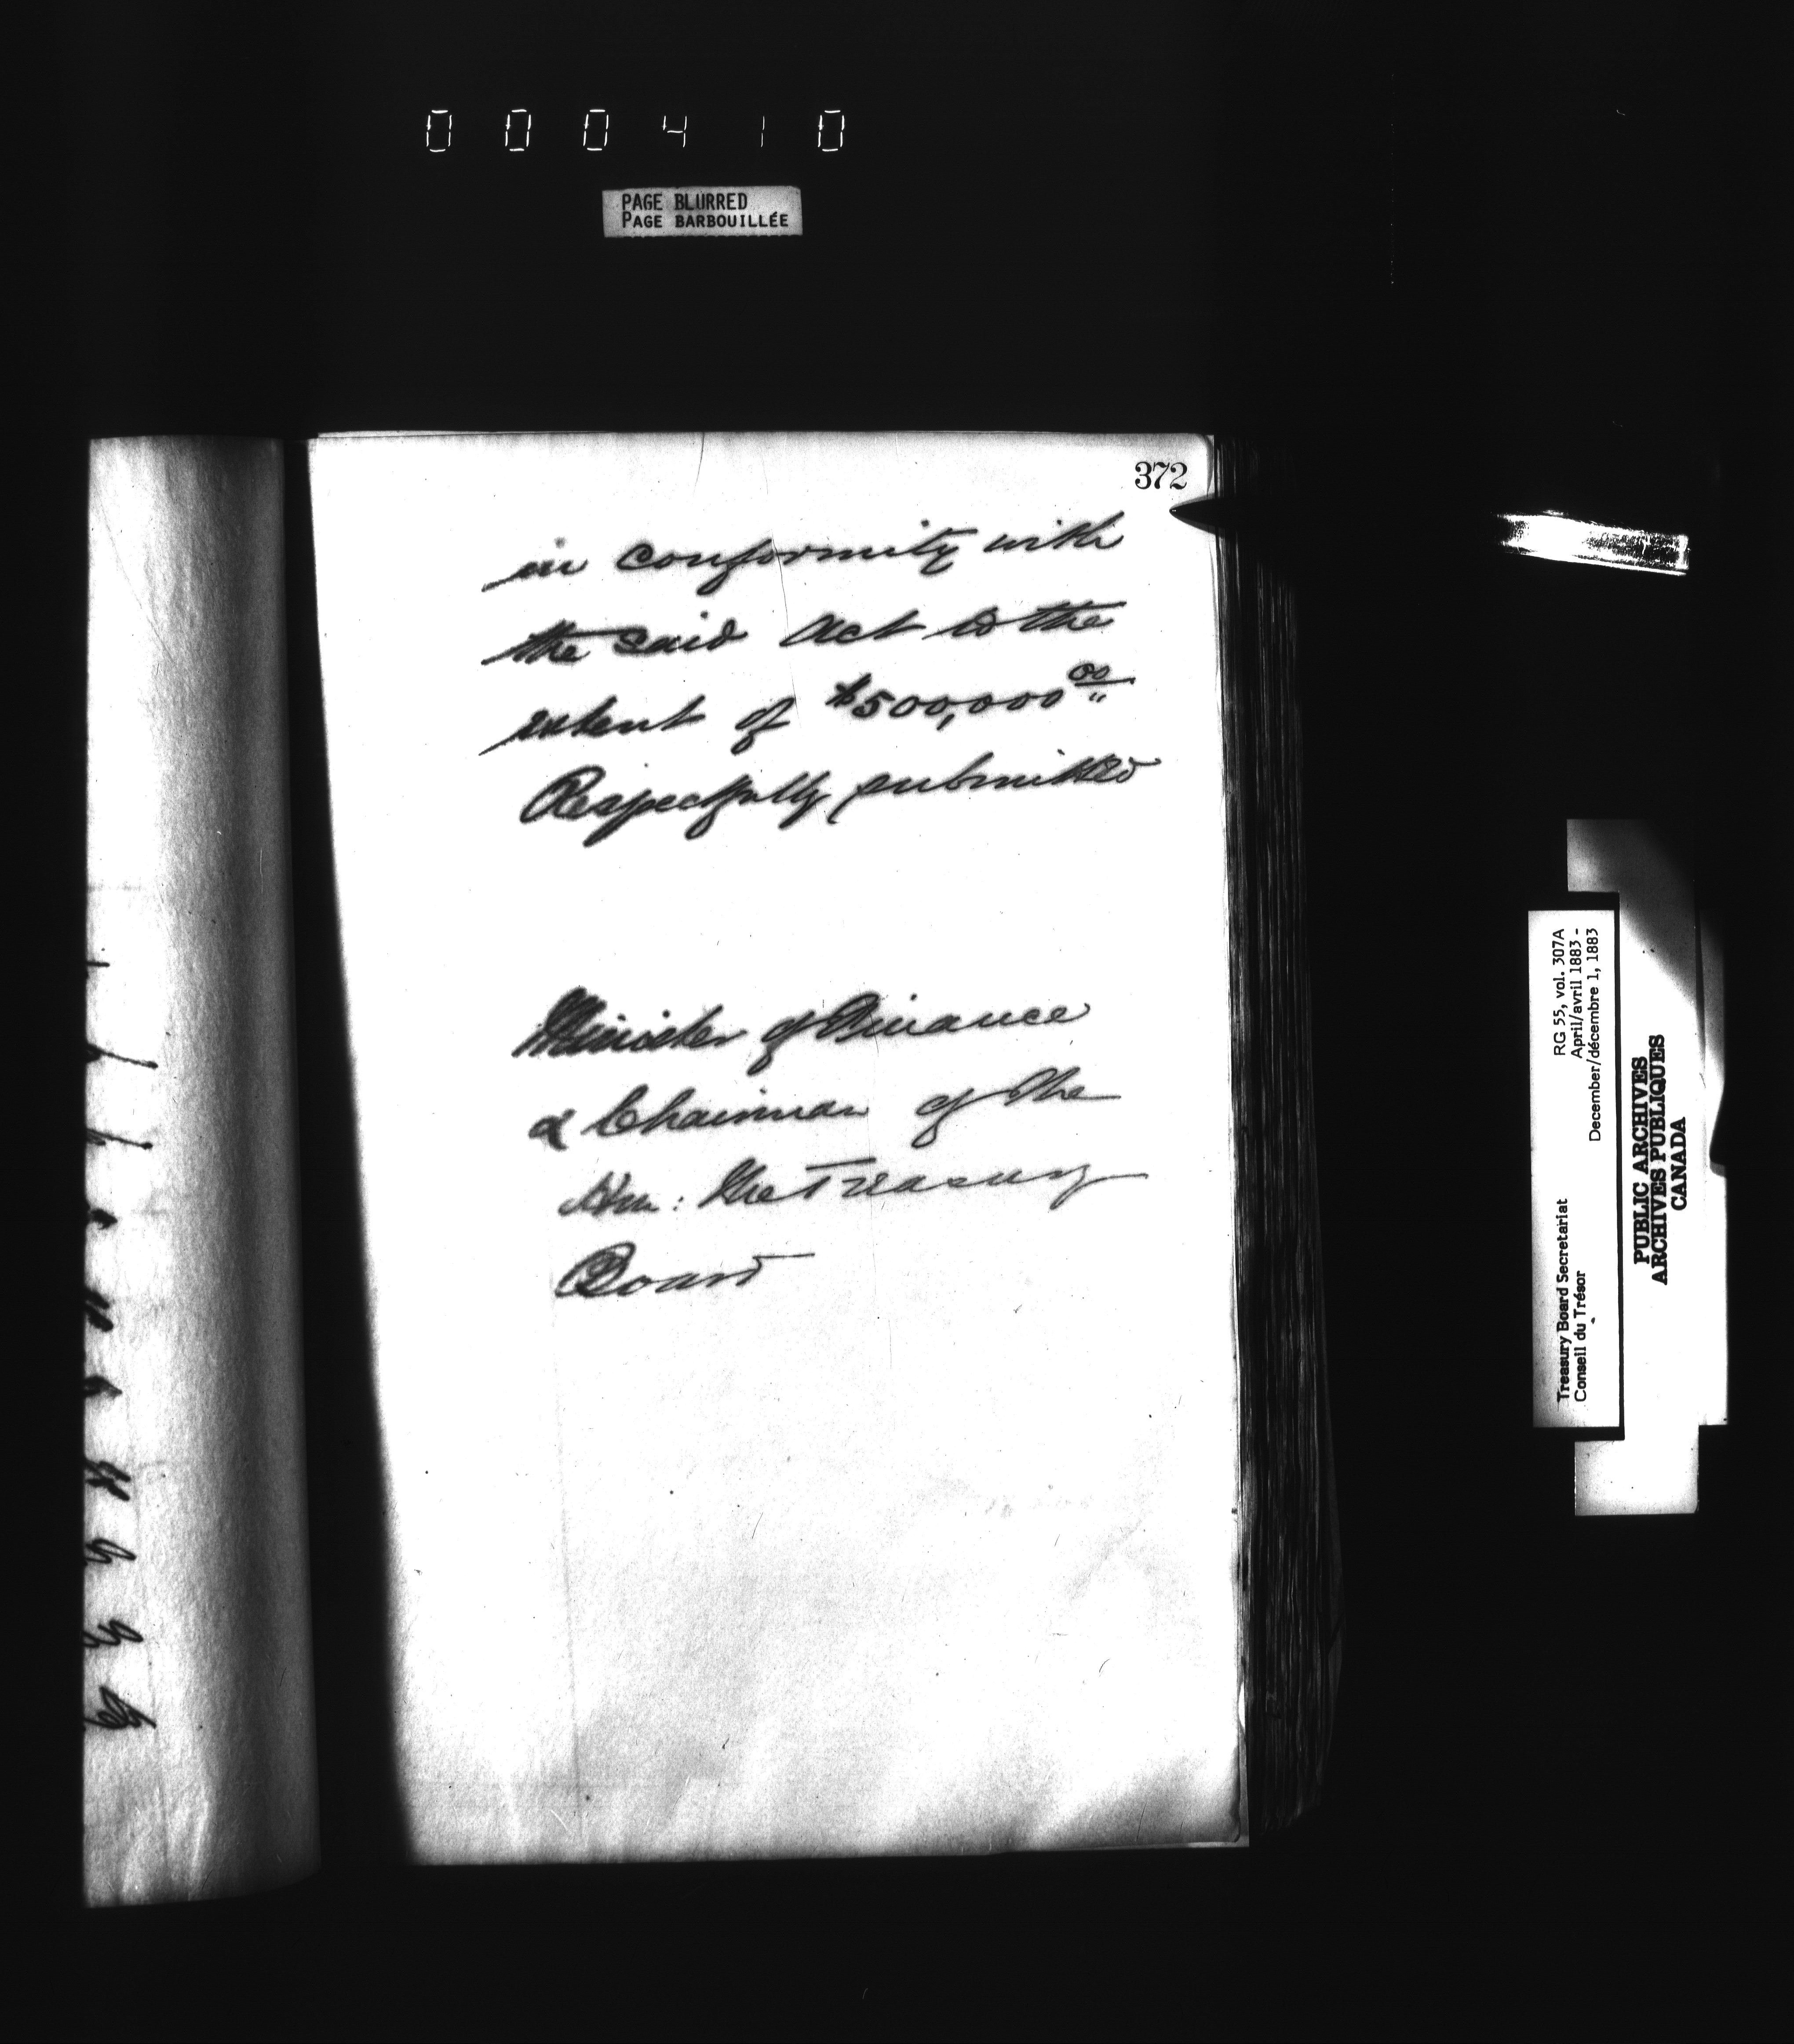 000410
PAGE BLURRED
PAGE BARBOUILLÉE
372
in conformity with
the said Act to the
extent of $500,000 00
Respectfully submitted
Minister of Finance
& Chairman of the
Hon: the Treasury
Board
Treasury Board Secretariat RG 55, vol. 307A
Conseil du Trésor April/avril 1883 -
December/décembre 1, 1883
PUBLIC ARCHIVES
ARCHIVES PUBLIQUES
CANADA